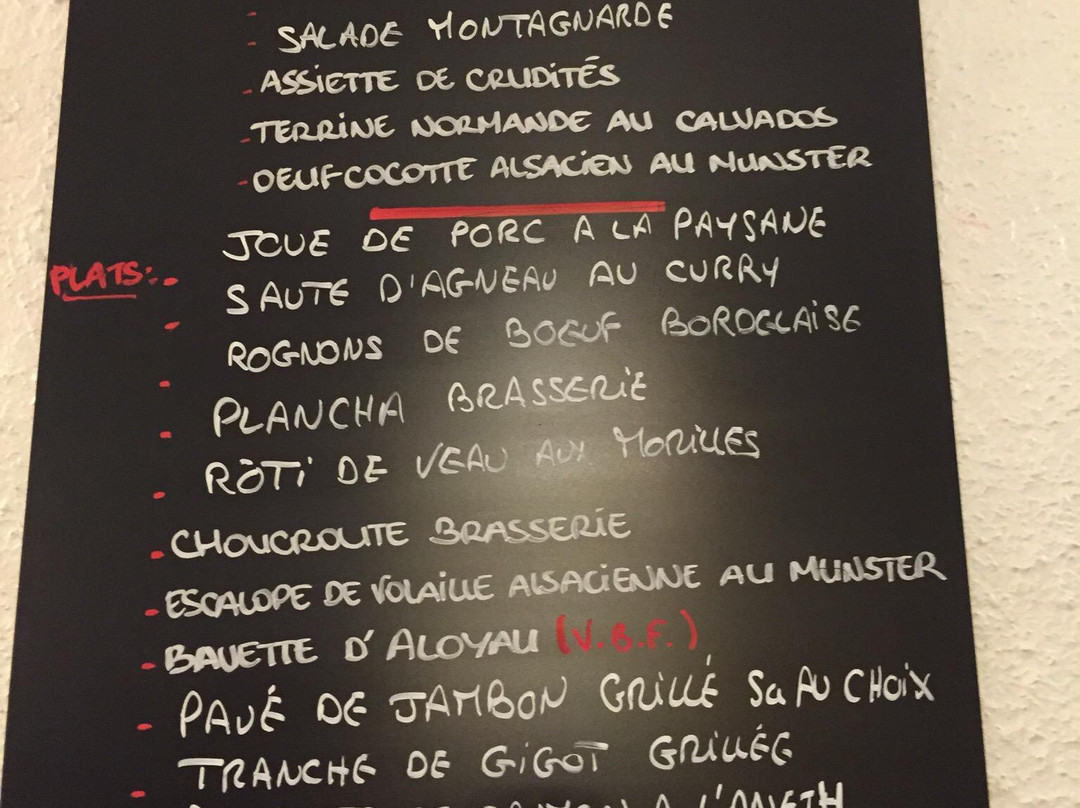 - SALADE MONTAGNARDE
- ASSIETTE DE CRUDITÉS
- TERRINE NORMANDE AU CALVADOS
- OEUF COCOTTE ALSACIEN AU MUNSTER
JOUE DE PORC A LA PAYSANE
PLATS: - SAUTE D'AGNEAU AU CURRY
- ROGNONS DE BOEUF BORDELAISE
- PLANCHA BRASSERIE
- RÔTI DE VEAU AUX MORILLES
- CHOUCROUTE BRASSERIE
- ESCALOPE DE VOLAILLE ALSACIENNE AU MUNSTER
- BAVETTE D'ALOYAU (V.B.F.)
- PAVÉ DE JAMBON GRILLÉ Sce AU CHOIX
- TRANCHE DE GIGOT GRILLÉE
A L'ANETH